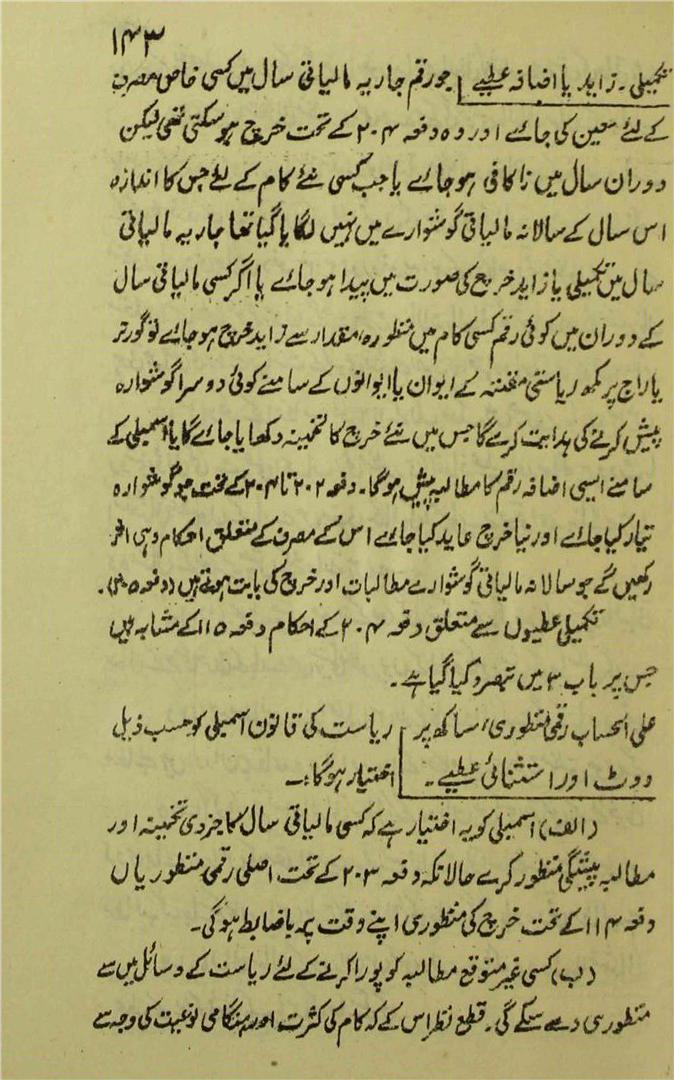 ۱۴۳
تکمیلی۔ زاید یا اضافہ عطیے | جو رقم جاریہ مالیاتی سال میں کسی خاص مصرف
کے لئے معین کی جائے اور وہ دفعہ ۲۰۴ کے تحت خرچ ہو سکتی تھی لیکن
دوران سال میں ناکافی ہو جائے یا جب کسی نئے کام کے لئے جس کا اندازہ
اس سال کے سالانہ مالیاتی گوشوارے میں نہیں لگایا گیا تھا جاریہ مالیاتی
سال میں تکمیلی یا زاید خرچ کی صورت میں پیدا ہو جائے یا اگر کسی مالیاتی سال
کے دوران میں کوئی رقم کسی کام میں منظورہ مقدار سے زاید خرچ ہو جائے تو گورنر
یا راج پرمکھ ریاستی مقننہ کے ایوان یا ایوانوں کے سامنے کوئی دوسرا گوشوارہ
پیش کرنے کی ہدایت کرے گا جس میں نئے خرچ کا تخمینہ دکھایا جائے گا یا اسمبلی کے
سامنے ایسی اضافہ رقم کا مطالبہ پیش ہو گا۔ دفعہ ۲۰۲ تا ۲۰۴ کے تحت جو گوشوارہ
تیار کیا جائے اور نیا خرچ عاید کیا جائے اس کے مصرف کے متعلق احکام وہی اثر
رکھیں گے جو سالانہ مالیاتی گوشوارے مطالبات اور خرچ کی بابت ہوتے ہیں (دفعہ ۲۰۵)۔
تکمیلی عطیوں سے متعلق دفعہ ۲۰۴ کے احکام دفعہ ۱۱۵ کے مشابہ ہیں
جس پر باب ۳ میں تبصرہ کیا گیا ہے۔
علی الحساب رقمی منظوری، ساکھ پر | ریاست کی قانون اسمبلی کو حسب ذیل
ووٹ اور استثنائی عطیے۔ | اختیار ہو گا:۔
(الف) اسمبلی کو یہ اختیار ہے کہ کسی مالیاتی سال کا جزوی تخمینہ اور
مطالبہ پیشگی منظور کرے حالانکہ دفعہ ۲۰۳ کے تحت اصلی رقمی منظوریاں
دفعہ ۱۱۴ کے تحت خرچ کی منظوری اپنے وقت پر باضابطہ ہو گی۔
(ب) کسی غیر متوقع مطالبہ کو پورا کرنے کے لئے ریاست کے وسائل میں سے
منظوری دے سکے گی۔ قطع نظر اس کے کہ کام کی کثرت اور ہنگامی نوعیت کی وجہ سے